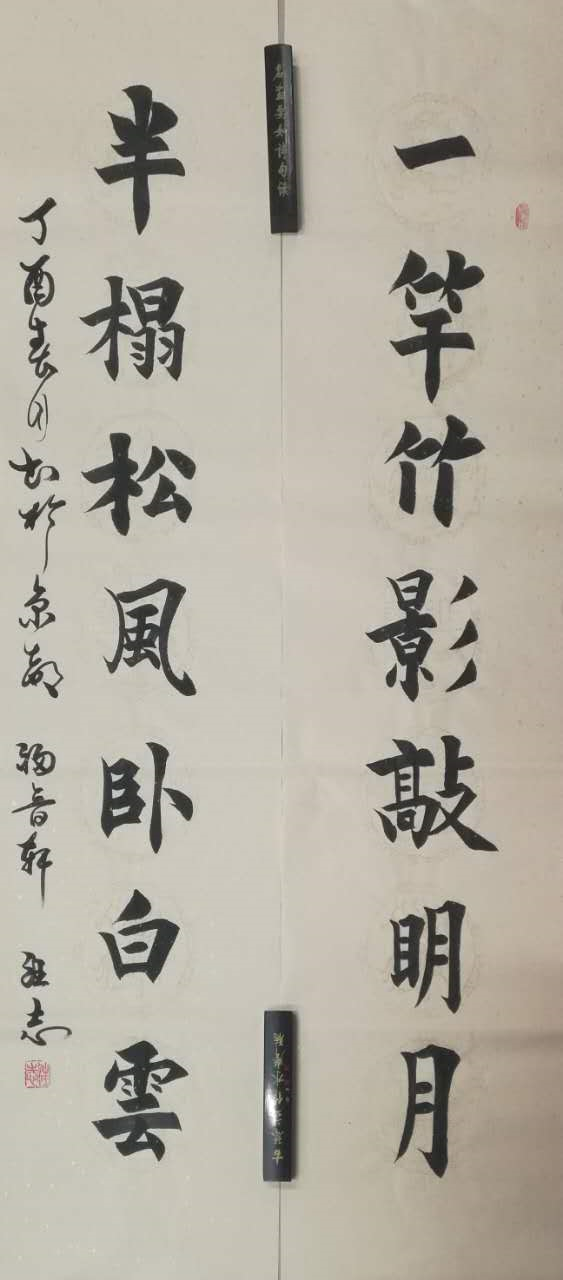 一竿竹影敲明月
半榻松風卧白雲
丁酉春月書於京都 福音軒 志